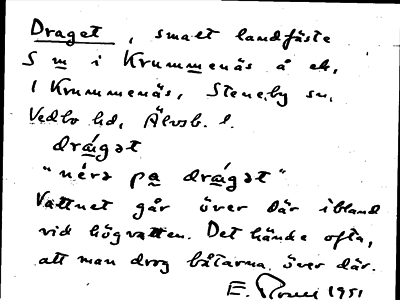 Draget, smalt landfäste
S m i Krummenäs å ek.
1 Krummenäs, Steneby sn.
Vedbo hd, Älvsb. l.
drágət
"nérə pa drágət"
Vattnet går över där ibland
vid högvatten. Det hände ofta,
att man drog båtarna över där.
E. 1951